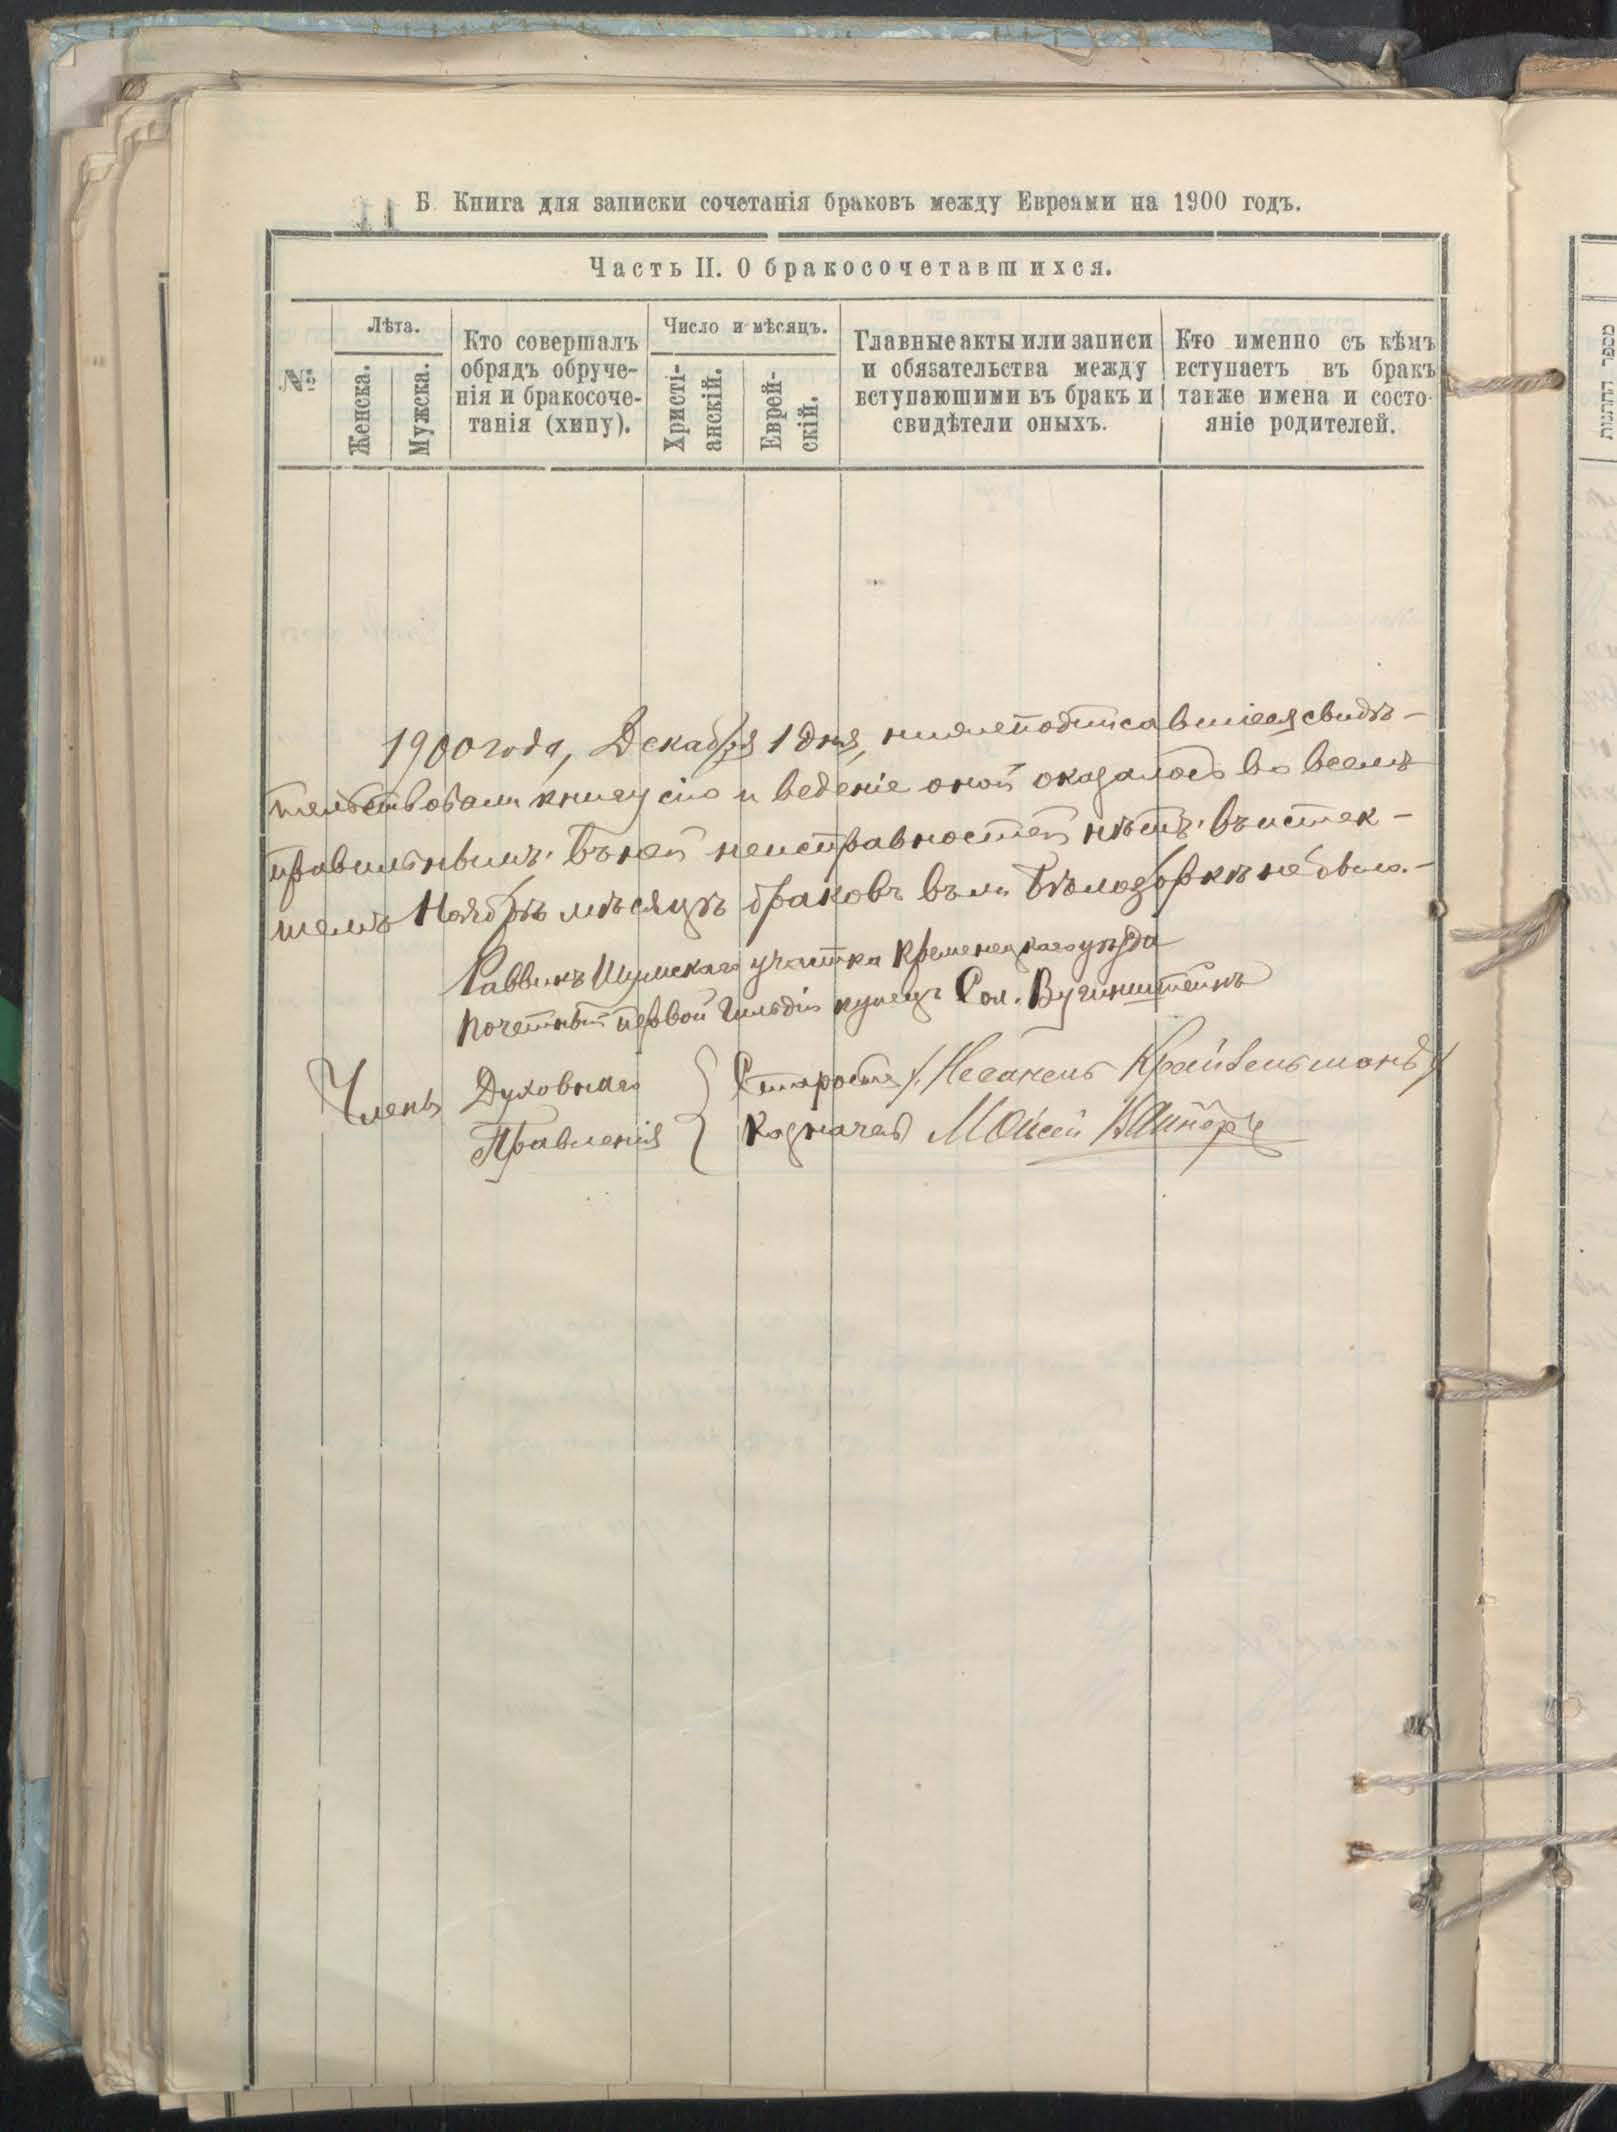 Б. Книга для записки сочетанія браковъ между Евреами на 1900 годъ.
Часть II. О бракосочетавшихся.
№
Лѣта.
Женска.
Мужска.
Кто совершалъ
обрядъ обруче-
нія и бракосоче-
танія (хипу).
Число и мѣсяцъ.
Христі-
анскій.
Еврей-
скій.
Главные акты или записи
и обязательства между
вступающими въ бракъ и
свидѣтели оныхъ.
Кто именно съ кѣмъ
вступаетъ въ бракъ
также имена и состо-
яніе родителей.
1900 года, Декабря 1 дня, нижеподписавшіеся свидѣ-
тельствовали книгу сію и веденіе оной оказалось во всемъ
правильнымъ. Въ ней неисправностей нѣтъ. Въ истек-
шемъ Ноябрѣ мѣсяцѣ браковъ въ м. Бѣлозоркѣ не было.-
Раввинъ Шумскаго участка Кременецкаго уѣзда
Почетный первой Гильдіи купецъ Сол.
Члены Духовнаго Правленія
Староста Крайзельманъ
Казначей Мойсей Вайнеръ
מספר החתנות